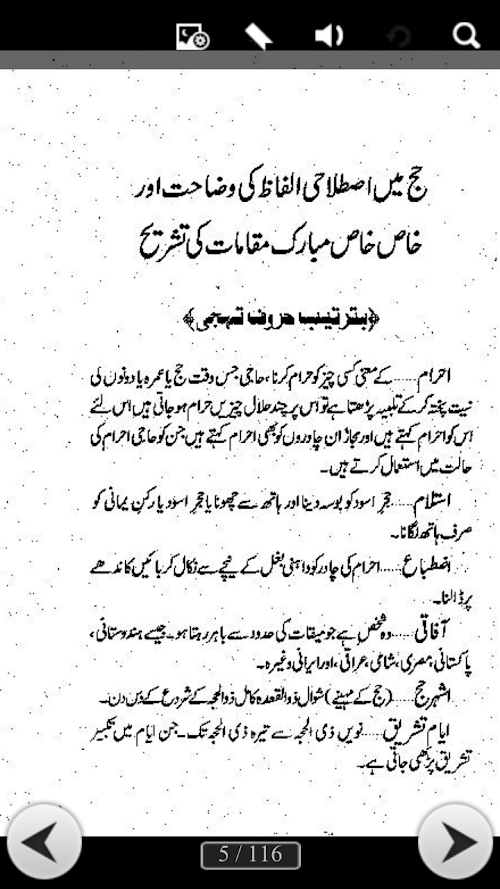 حج میں اصطلاحی الفاظ کی وضاحت اور
خاص خاص مبارک مقامات کی تشریح
﴿بترتیب حروف تہجی﴾
احرام.....کے معنی کسی چیز کو حرام کرنا، حاجی جس وقت حج یا عمرہ یا دونوں کی
نیت پختہ کر کے تلبیہ پڑھتا ہے تو اس پر چند حلال چیزیں حرام ہو جاتی ہیں اس لئے
اس کو احرام کہتے ہیں اور مجازاً ان چادروں کو بھی احرام کہتے ہیں جن کو حاجی احرام کی
حالت میں استعمال کرتے ہیں۔
استلام.....حجر اسود کو بوسہ دینا اور ہاتھ سے چھونا یا حجر اسود یا رکن یمانی کو
صرف ہاتھ لگانا۔
اضطباع.....احرام کی چادر کو داہنی بغل کے نیچے سے نکال کر بائیں کاندھے
پر ڈالنا۔
آفاقی.....وہ شخص ہے جو میقات کی حدود سے باہر رہتا ہو۔ جیسے ہندوستانی،
پاکستانی، مصری، شامی، عراقی، اور ایرانی وغیرہ۔
اشہر حج.....(حج کے مہینے) شوال ذوالقعدہ کامل ذوالحجہ کے شروع کے دس دن۔
ایام تشریق.....نویں ذی الحجہ سے تیرہ ذی الحجہ تک۔ جن ایام میں تکبیر
تشریق پڑھی جاتی ہے۔
5 / 116